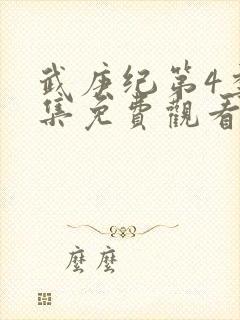 武庚纪第4
集免費觀看
麼麼